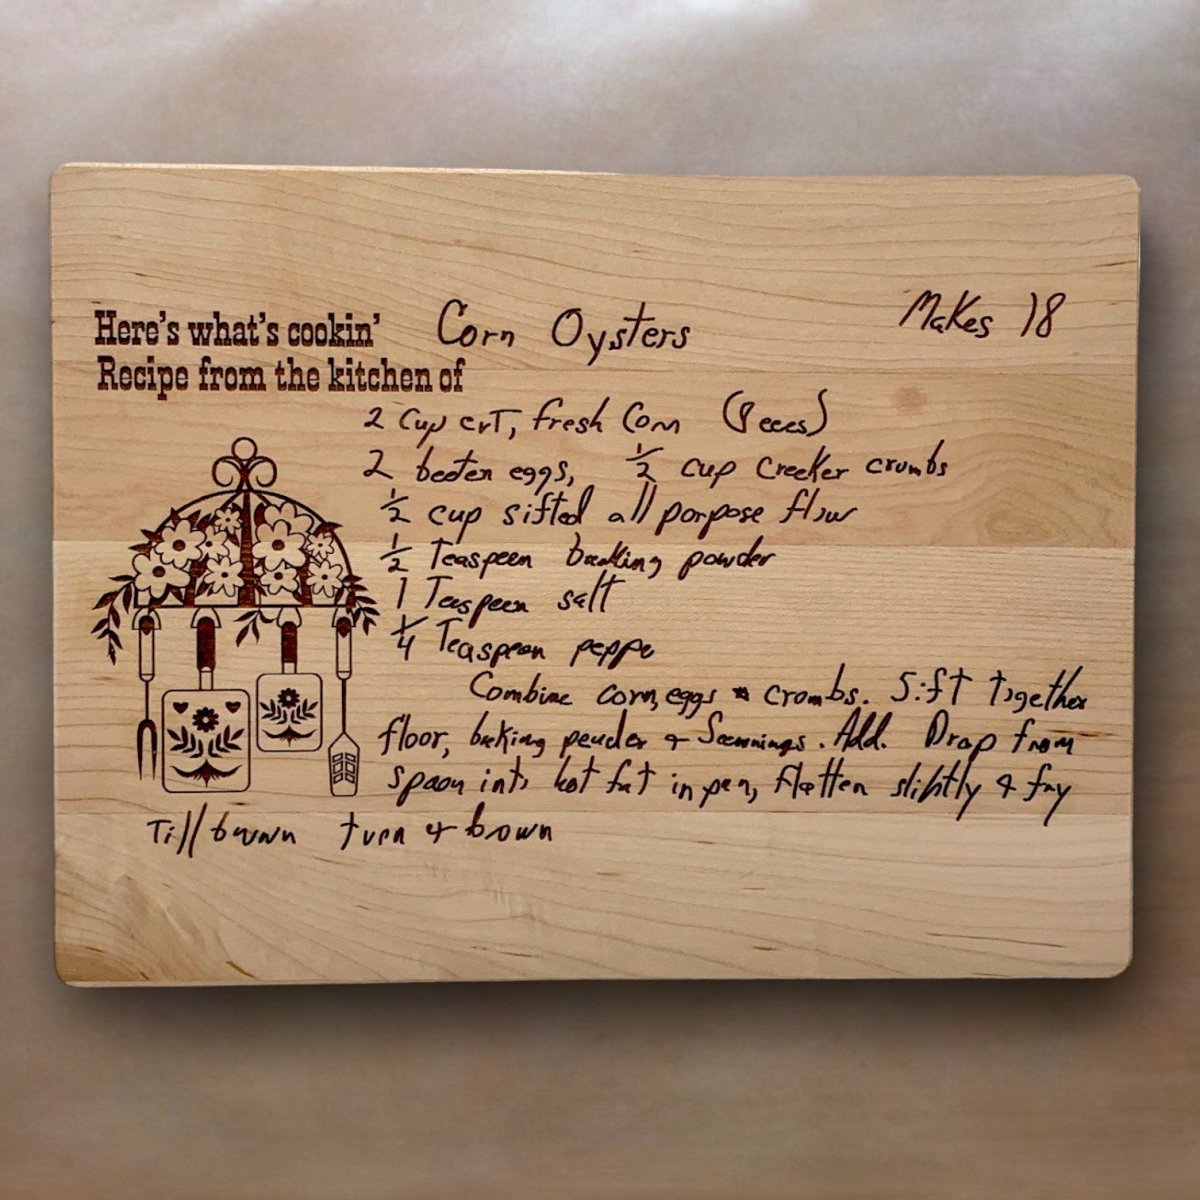 Here's what's cookin' Corn Oysters Makes 18
Recipe from the kitchen of
2 Cup cut, fresh Corn (Peces)
2 beeten eggs, 1/2 cup creeker crumbs
1/2 cup sifted all porpose flow
1/2 Teaspeen baking powder
1 Teaspeen salt
1/4 Teaspeen peppe
Combine corn, eggs & crombs. Sift together
floor, beking peuder & Seesnings. Add. Drop from
spoon into hot fat in pen, flatten slightly & fry
Till brown turn & brown